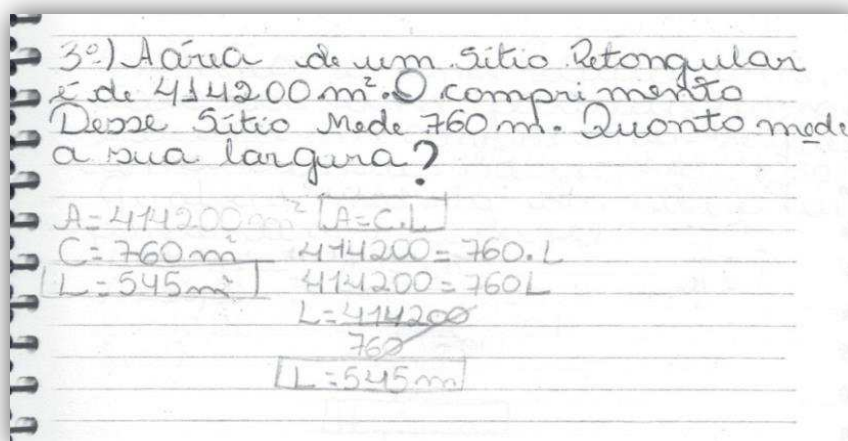 3º) A área de um sítio Retongular
é de 414200 m². O comprimento
Desse Sítio Mede 760 m. Quonto mede
a sua largura?
A=414200 m² A=C.L
C=760 m² 414200=760.L
L=545 m² 414200=760L
L=414200
760
L=545 m